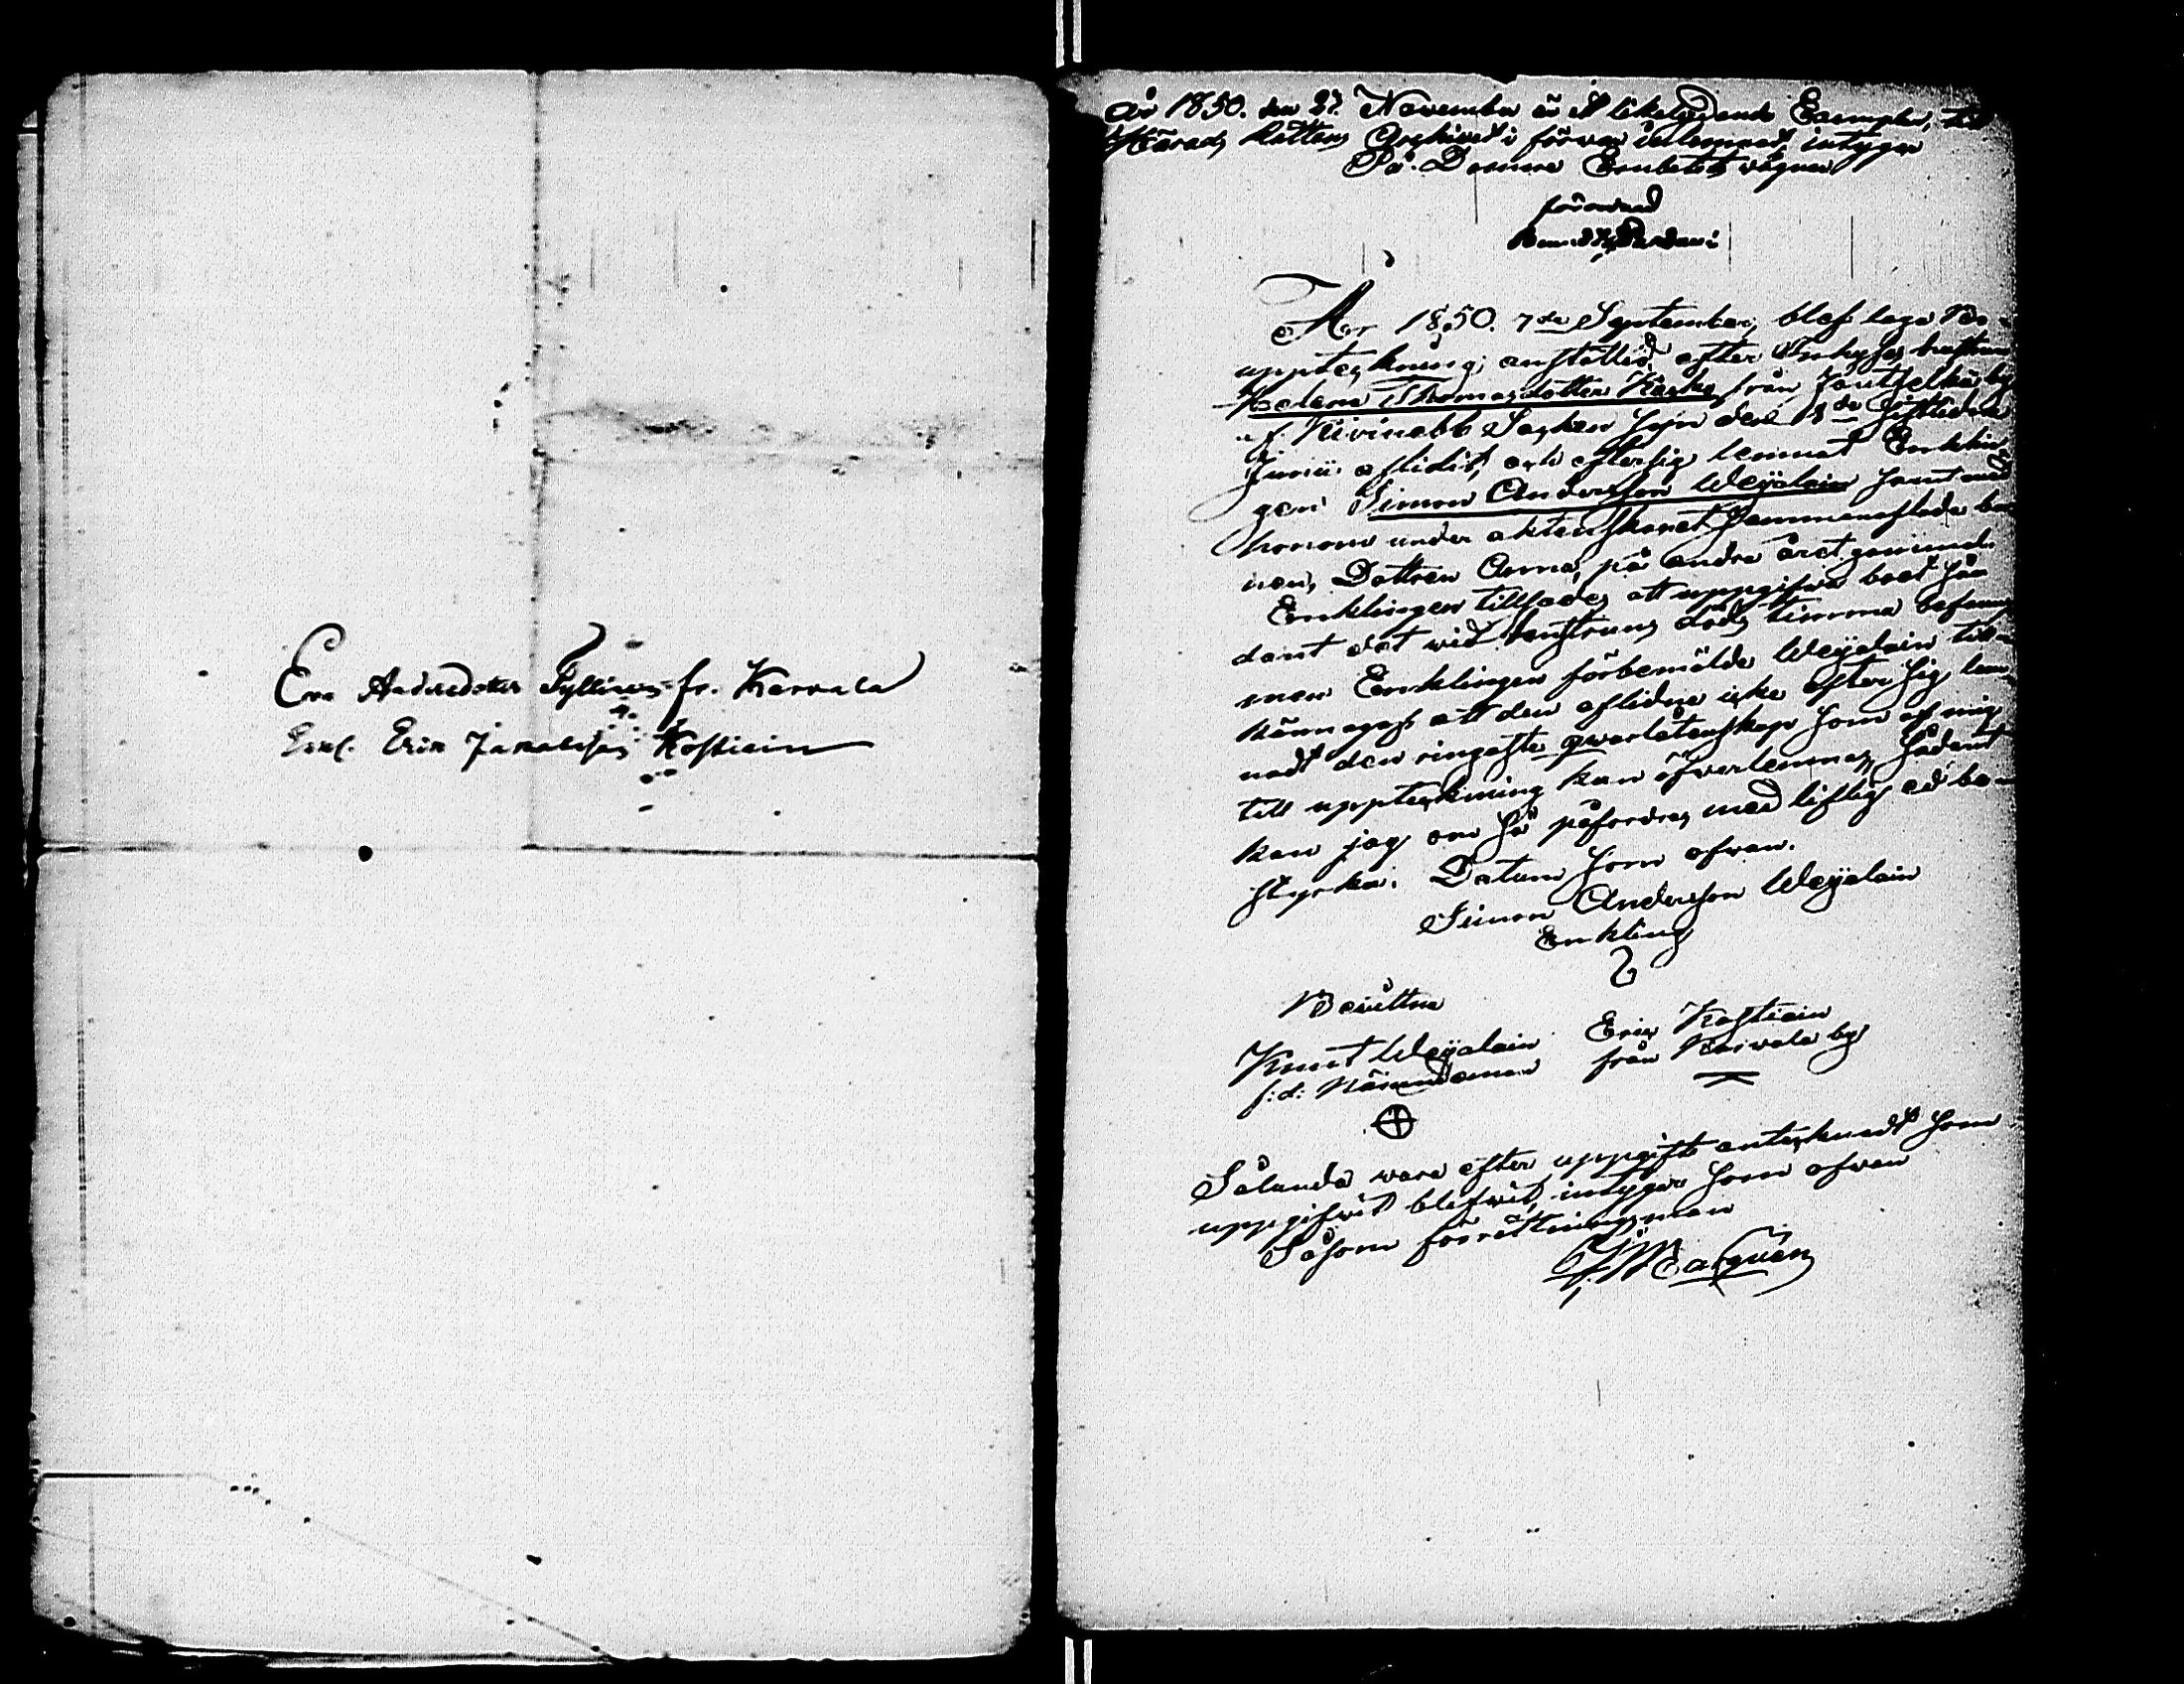 Eva Andersdotter Pyllinen fr. Karvala
Enkl. Erik Jakobsson Kostiain
År 1850. den 27. November är Et likalydande Exemplar, till
Härads Rättens Archivet i förvar inlemnat, intygar
På Domare Embetets vägnar
År 1850. 7de September, blef laga Bo-
uppteckning anstelld efter Inhyses hustrun
Helena Thomasdotter Karhu från Jautselkä by
af Kivinebb Socken som den 18de sistledne
Junii aflidit, och eftersig lemnat Enklin-
gen Simon Andersson Weijalain samt med
honom under äktenskapet sammanaflade bar-
nen, Dottren Anna, på andra året gammal.
Enklingen tillsades att uppgifva boet så-
dant det vid hustruns döds timma befans
men Enklingen förbemälde Weijalain till-
kännagaf att den aflidne icke efter sig lem-
nadt den ringaste qvarlåtenskap som af mig
till uppteckning kan öfverlemnas, sådant
kan jag om så påfordras med liflig ed be-
styrka. Datum som ofvan.
Simon Andersson Weijalain
Enkling
Bevittna
Knut Weijalain Erik Kostiain
f:d: Nämndeman från Karvala by
Sålunda vara efter uppgift antecknadt som
uppgifvit blifvit, intygar som ofvan
Såsom förrättningsman